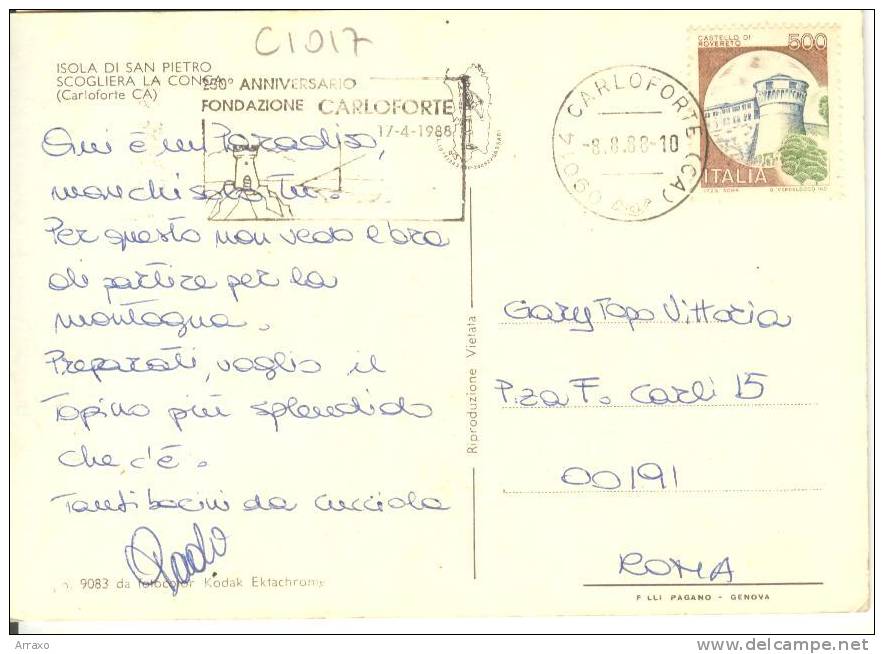 C1017
ISOLA DI SAN PIETRO
SCOGLIERA LA CONCA
(Carloforte CA)
250° ANNIVERSARIO
FONDAZIONE CARLOFORTE
17-4-1988
09014 CARLOFORTE (CA)
-8.8.88-10
CASTELLO DI
ROVERETO
500
ITALIA
I.P.Z.S. ROMA
Qui è un Paradiso,
manchi solo tu.
Per questo non vedo l'ora
di partire per la
montagna.
Preparati, voglio il
Topino più splendido
che c'è.
Tanti bacini da cucciola
Paolo
Gary Topo Vittoria
P.za F. Carli 15
00191
ROMA
Riproduzione Vietata
n. 9083 da fotocolor Kodak Ektachrome
F.LLI PAGANO - GENOVA
Arraxo
www.delcampe.net